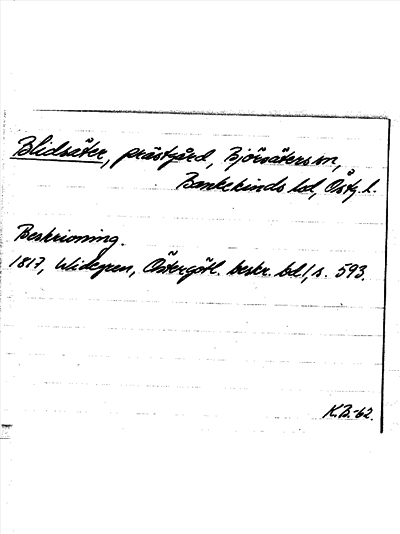 Blidsäter, prästgård, Björsäters sn,
Bankekinds hd, Östg. l.
Beskrivning.
1817, Widegren, Östergötl. beskr. bd 1, s. 593.
K.B.-62.